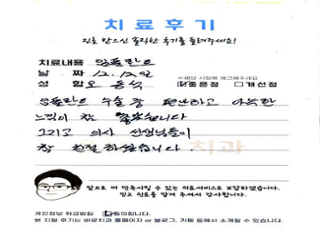 치료후기
진료 받으신 솔직한 후기를 들려주세요!
치료내용 임플란트
날 짜 12.12.12
※해당 사항에 체크해주세요
성 함 오 동식 ☑좋은점 □개선점
임플란트 수술 중 편안하고 아늑한
느낌이 참 좋았습니다
그리고 의사 선생님들이
참 친절 하셨습니다.
치과
앞으로 더 만족시킬 수 있는 의료서비스로 보답하겠습니다.
믿고 진료를 맡겨 주셔서 감사합니다.
개인정보 취급방침 ☑동의합니다.
본 치료 후기는 바로치과 홈페이지 or 블로그, 카페 등에서 소개될 수 있습니다.